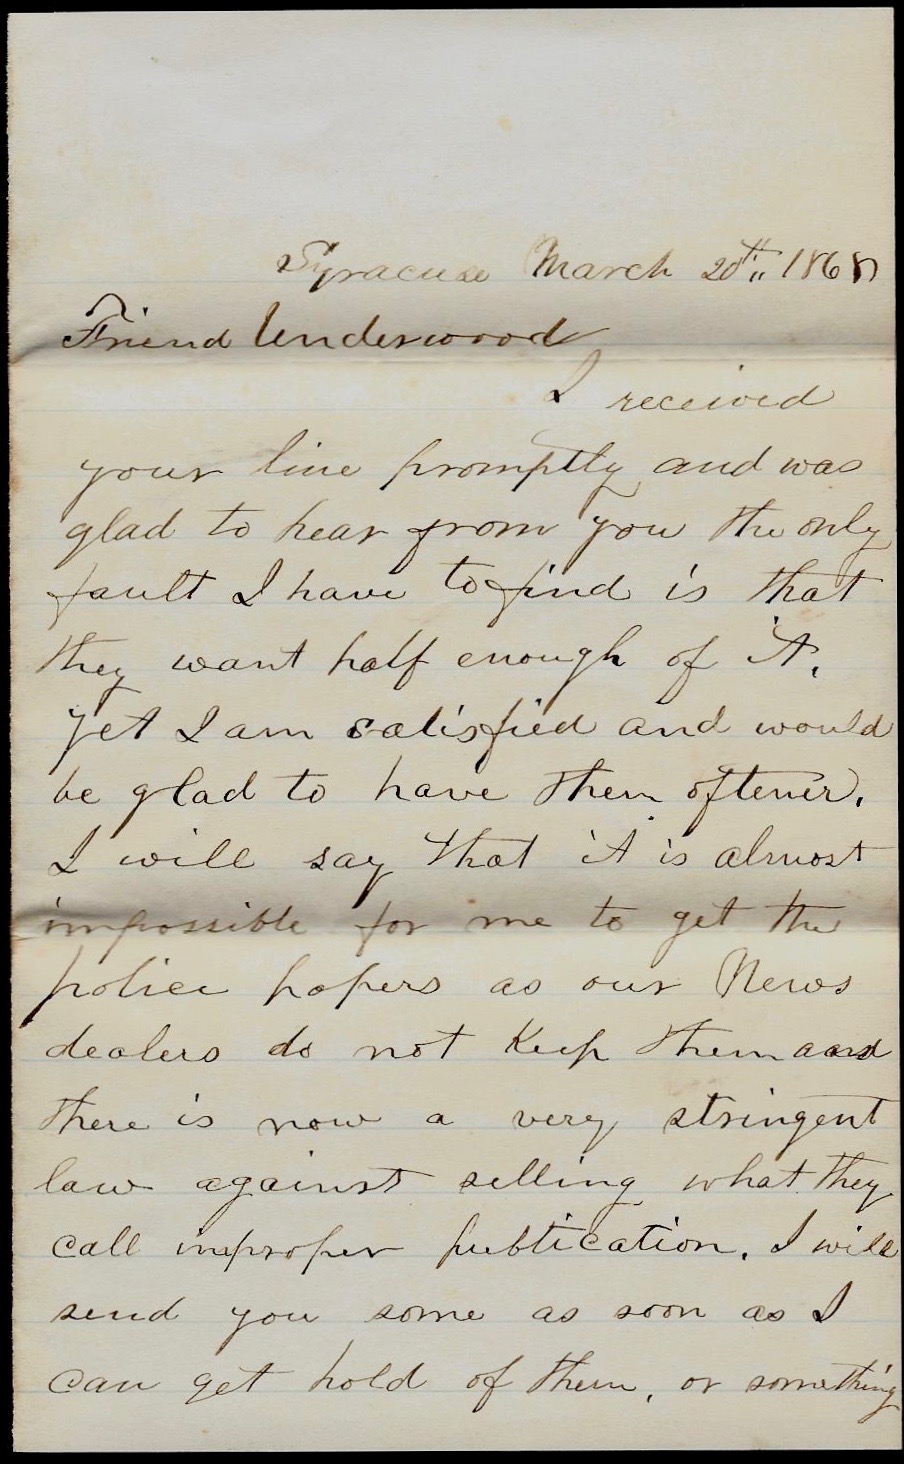 Syracuse March 20th,, 1868
Friend Underwood
I received
your line promptly and was
glad to hear from you the only
fault I have to find is that
they want half enough of it.
Yet I am satisfied and would
be glad to have them oftener.
I will say that it is almost
impossible for me to get the
police papers as our News
dealers do not Keep them and
there is now a very stringent
law against selling what they
call improper publication. I will
send you some as soon as I
can get hold of them, or something